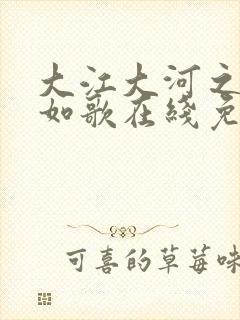 大江大河之
如歌在綫免
可喜的草莓味